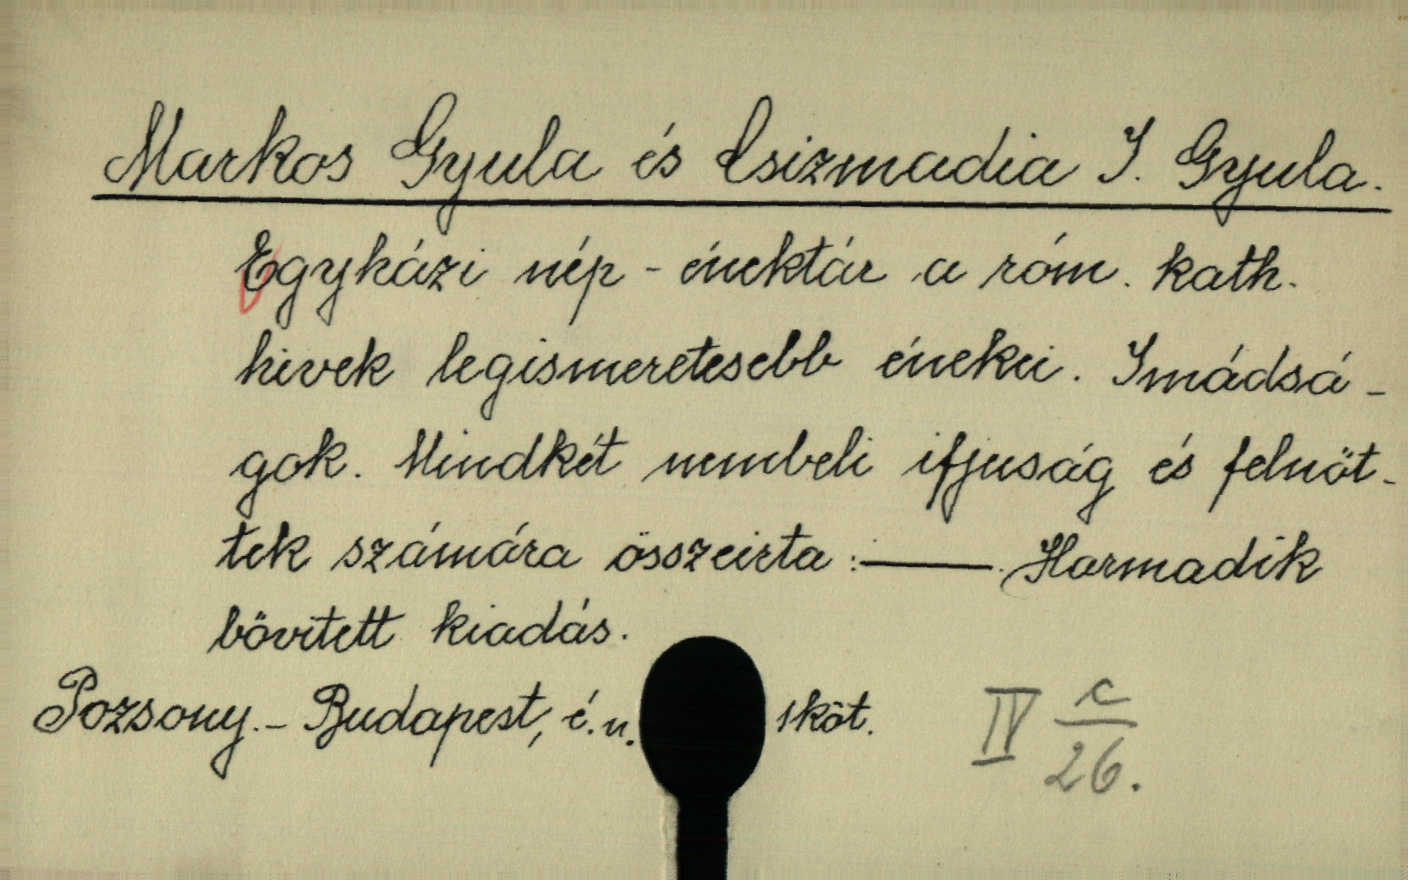 Markos Gyula és Csizmadia I. Gyula.
Egyházi nép-énektár a róm. kath.
hivek legismeretesebb énekei. Imádsá-
gok. Mindkét nembeli ifjuság és felnőt-
tek számára összeirta :——. Harmadik
bővitett kiadás.
Pozsony.- Budapest, é.n. 1köt.
IV c/26.